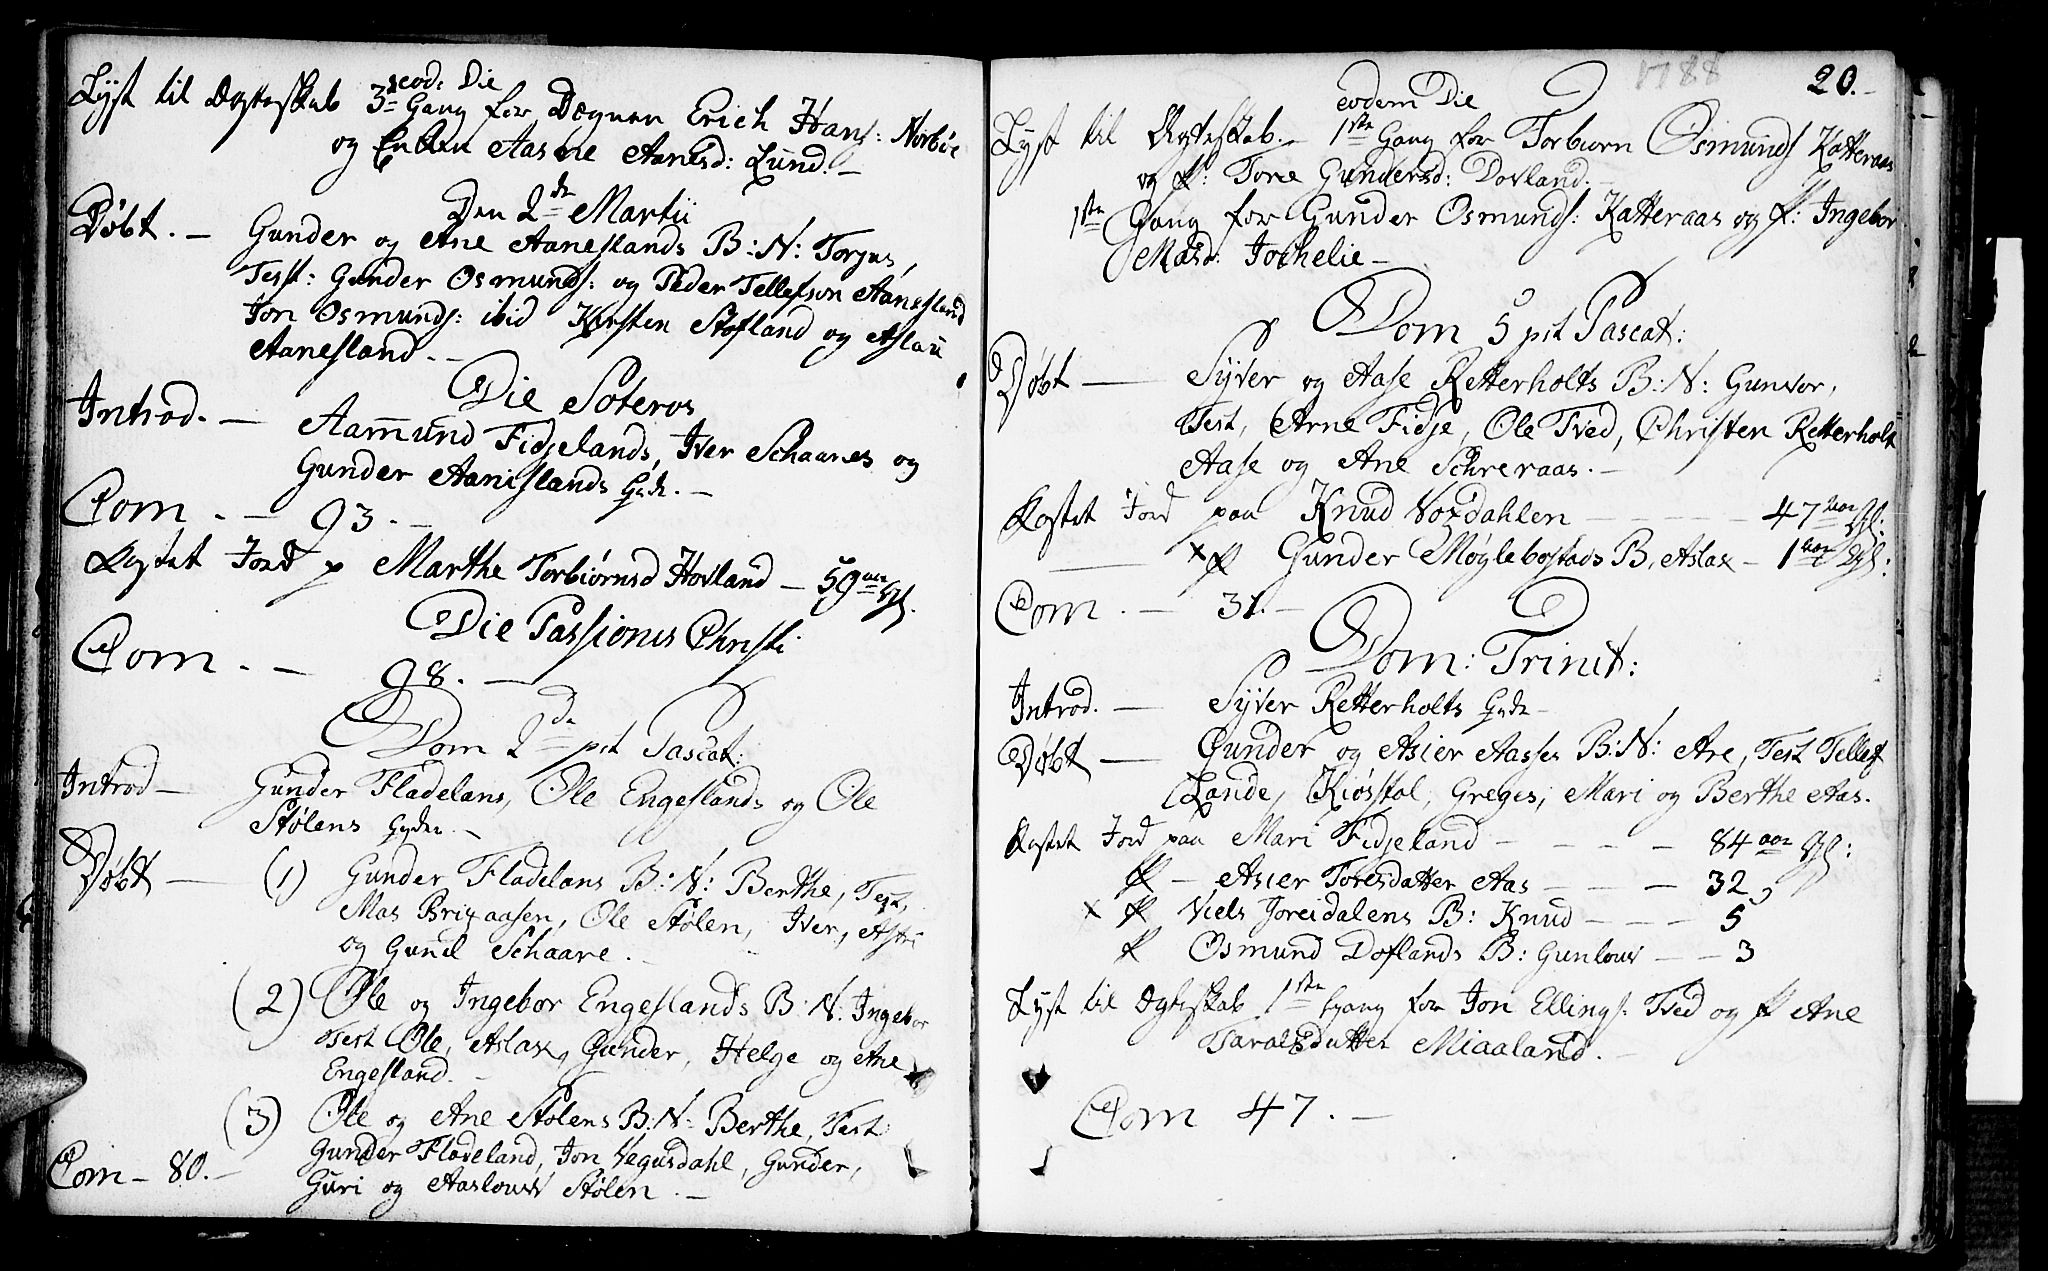 eod: Die
Lyst til Ægteskab 3die Gang for Degnen Erich Hans: Norbøe
og Enken Aasne Aanesd: Lund. –
Den 2de Martii
Døbt. – Gunder og Ane Aaneslands B: N: Torjus,
Test: Gunder Osmunds: og Peder Tellefson Aanesland
Jon Osmunds: ibid Kirsten Stofland og Aslau
Aanesland. –
Die Soteros
Introd. – Aamund Fidjelands, Iver Schaares og
Gunder Aanislands
Com. – 93. –
Kastet Jord p Marthe Torbiørnsd Hovland – 59 aar gl.
Die Passionis Christi
Com. – 98. –
Dom 2da pst Pascat:
Introd – Gunder Fladelans, Ole Engeslands og Ole
Stølens
Døbt – (1) Gunder Fladelans B: N: Berthe, Test,
Mas Brixaasen, Ole Stølen, Iver, Astri
og Gunil Schaare. –
(2) Ole og Ingebor Engeslands B: N: Ingebor
Test Ole, Aslax, Gunder, Helge og Ane
Engesland. –
(3) Ole og Ane Stølens B: N: Berthe, Test:
Gunder Fladeland, Jon Vegusdahl, Gunder,
Com – 80. – Guri og Aaslouw Stølen. –
1788 20. –
eodem Die
Lyst til Ægteskab. – 1ste Gang for Torbiorn Osmunds Katteraas
og P: Tone Gundersd: Dovland. –
1ste Gang for Gunder Osmunds: Katteraas og P: Ingebor
Masd: Jochelie –
Dom 5 pst Pascat:
Døbt – Syver og Aase Retterholts B: N: Gunvor,
Test, Arne Fidje, Ole Tved, Christen Retterholt
Aase og Ane Schreraas. –
Kastet Jord paa Knud Nordahlen – – – – 47 aar gl:
x P Gunder Møglebostads B, Aslax – 1 aar gl:
Com. – 31. –
Dom: Trinit:
Introd. – Syver Retterholts
Døbt – Gunder og Asier Aasses B: N: Are, Test Tellef
Lande, Kiøstol, Greges, Mari og Berthe Aas.
Kastet Jord paa Mari Fidjeland – – – – 84 aar gl:
P – Asier Toresdatter Aas – – – 32,
x P Niels Joreidalens B: Knud – – – 5
P Osmund Doflands B: Gunlouv – – 3
Lyst til Ægteskab 1ste Gang for Jon Ellings: Tved og P Ane
Taralsdatter Miaaland. –
Com 47. –